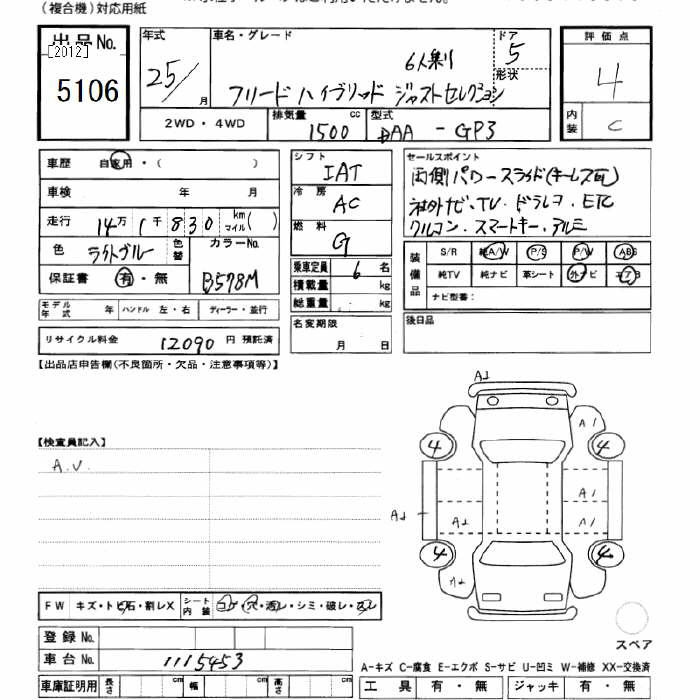 (複合機)対応用紙
出品No.
[2012]
5106
年式
25/
月
車名・グレード
6人乗り
フリードハイブリッド ジャストセレクション
ドア
5
形状
2WD・4WD
排気量
1500
cc
型式
DAA - GP3
評価点
4
内装
C
車歴 自家用・( )
車検 年 月
走行 14万 1千 830 km マイル( )
色 ライトブルー
色替
カラーNo.
B578M
保証書 有・無
モデル年式 年 ハンドル 左・右 ディーラー・並行
リサイクル料金 12090 円 預託済
シフト
IAT
冷房
AC
燃料
G
乗車定員 6 名
積載量 kg
総重量 kg
名変期限
月 日
セールスポイント
両側パワースライド(キーレス可)
社外ナビ、TV、ドラレコ、ETC
クルコン、スマートキー、アルミ
装備品
S/R 純A/W P/S P/W ABS
純TV 純ナビ 革シート 外ナビ エアB
ナビ型番:
後日品
【出品店申告欄(不良箇所・欠品・注意事項等)】
【検査員記入】
A.U.
A1
A1
4
4
A1
A2
A2
A1
4
4
A2
スペア
FW キズ・トビ石・割レX
シート内装 コゲ・穴・汚レ・シミ・破レ・スレ
登録No.
車台No. 1115453
車庫証明用 長さ cm 幅 cm 高さ cm
A-キズ C-腐食 E-エクボ S-サビ U-凹ミ W-補修 XX-交換済
工具 有・無 ジャッキ 有・無